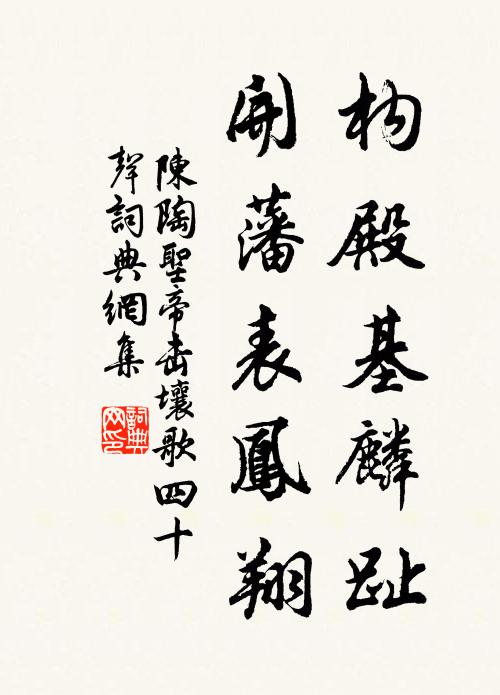 构殿基麟趾
開藩表鳳翔
陳陶聖帝击壤歌四十
聲詞典網集
詞典
网印